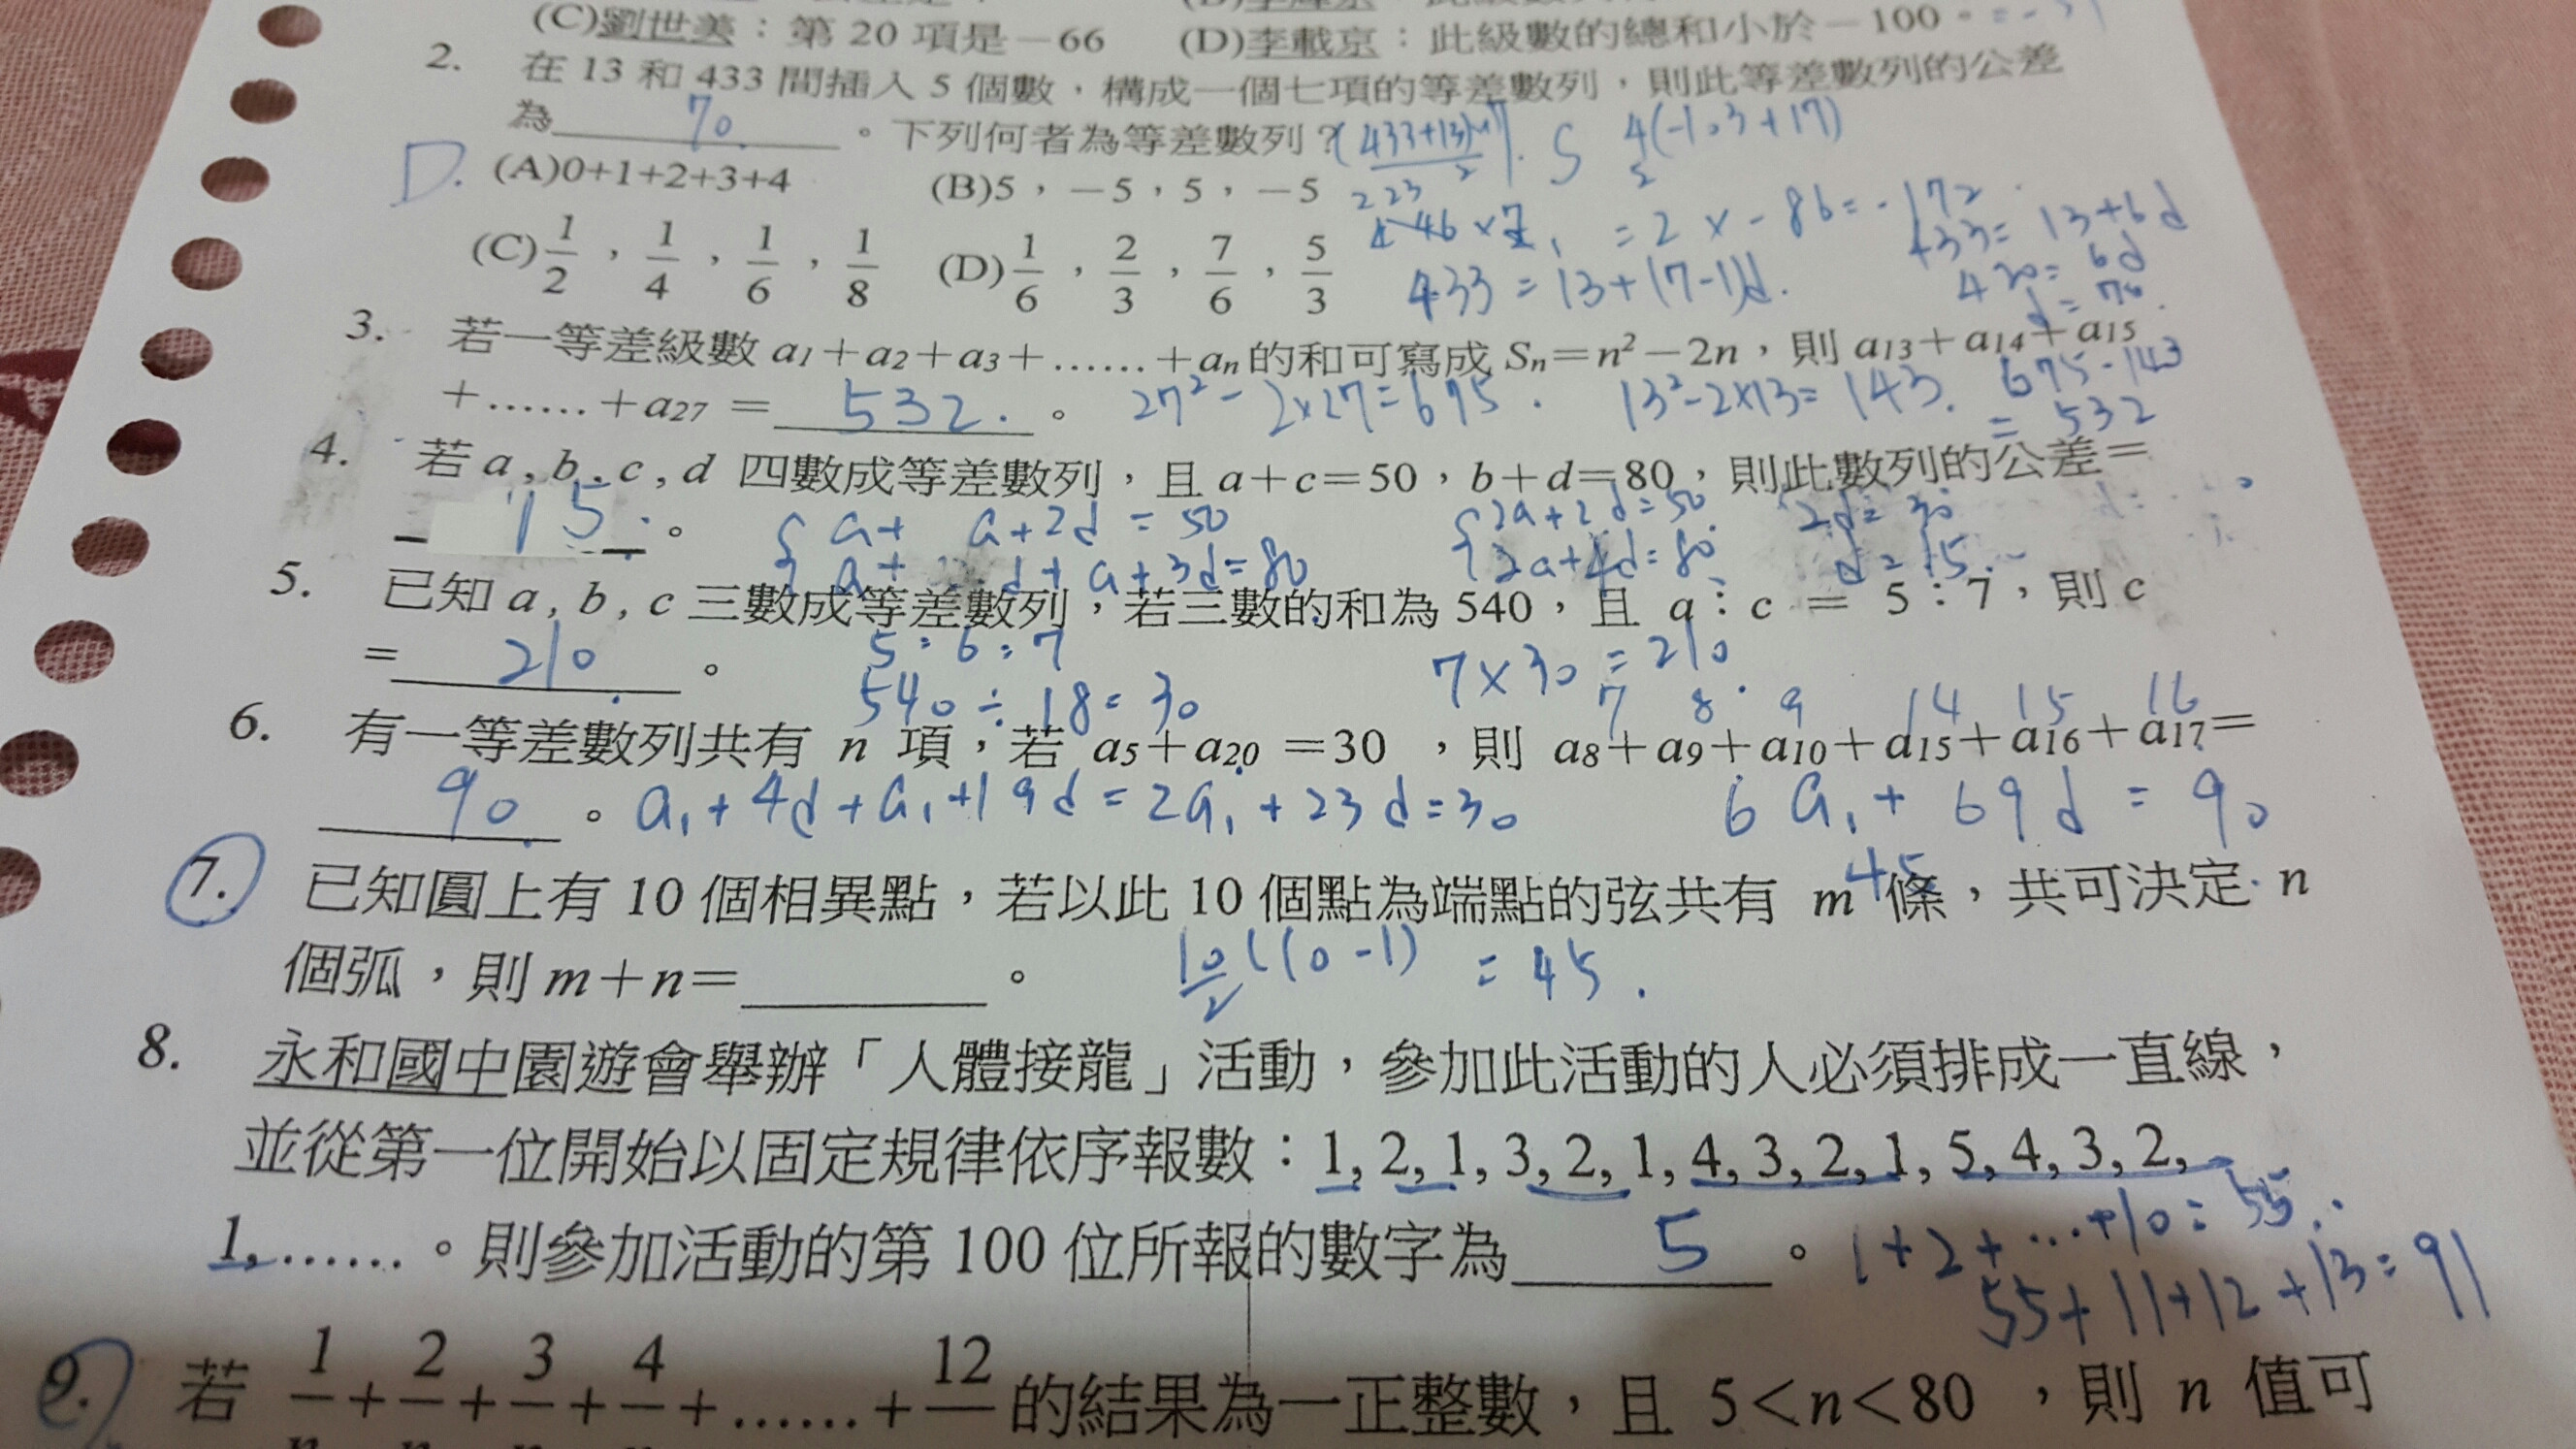 (C)劉世美：第 20 項是－66 (D)李載京：此級數的總和小於－100。
2. 在 13 和 433 間插入 5 個數，構成一個七項的等差數列，則此等差數列的公差
為 70 。下列何者為等差數列？
(433+13)×7
2
223
S 4(-103+17)
2
D. (A)0+1+2+3+4 (B)5，－5，5，－5
446×7
2
= 2 × -86 = -172
433 = 13+6d
(C)1/2，1/4，1/6，1/8 (D)1/6，2/3，7/6，5/3
433 = 13+(7-1)d.
420 = 6d
d = 70.
3. 若一等差級數 a1＋a2＋a3＋……＋an 的和可寫成 Sn＝n²－2n，則 a13＋a14＋a15
＋……＋a27 ＝ 532. 。 27²-2×27=675. 13²-2×13=143. 675-143
= 532
4. 若 a , b , c , d 四數成等差數列，且 a＋c＝50，b＋d＝80，則此數列的公差＝
15. 。 { a+ a+2d = 50 { 2a+2d=50 2d=30
a+ d+a+3d=80 2a+4d=80 d=15.
5. 已知 a , b , c 三數成等差數列，若三數的和為 540，且 a：c ＝ 5：7，則 c
＝ 210 。 5:6:7 7×30=210
540÷18=30 7 8 9 14 15 16
6. 有一等差數列共有 n 項，若 a5＋a20 ＝30 ，則 a8＋a9＋a10＋a15＋a16＋a17＝
90 。 a1+4d+a1+19d=2a1+23d=30 6a1+69d=90
45
7. 已知圓上有 10 個相異點，若以此 10 個點為端點的弦共有 m 條，共可決定 n
個弧，則 m＋n＝ 。 10/2(10-1) = 45.
8. 永和國中園遊會舉辦「人體接龍」活動，參加此活動的人必須排成一直線，
並從第一位開始以固定規律依序報數：1, 2, 1, 3, 2, 1, 4, 3, 2, 1, 5, 4, 3, 2,
1, ……。則參加活動的第 100 位所報的數字為 5 。 1+2+…+10=55.
55+11+12+13=91
9. 若 1/n＋2/n＋3/n＋4/n＋……＋12/ 的結果為一正整數，且 5＜n＜80 ，則 n 值可